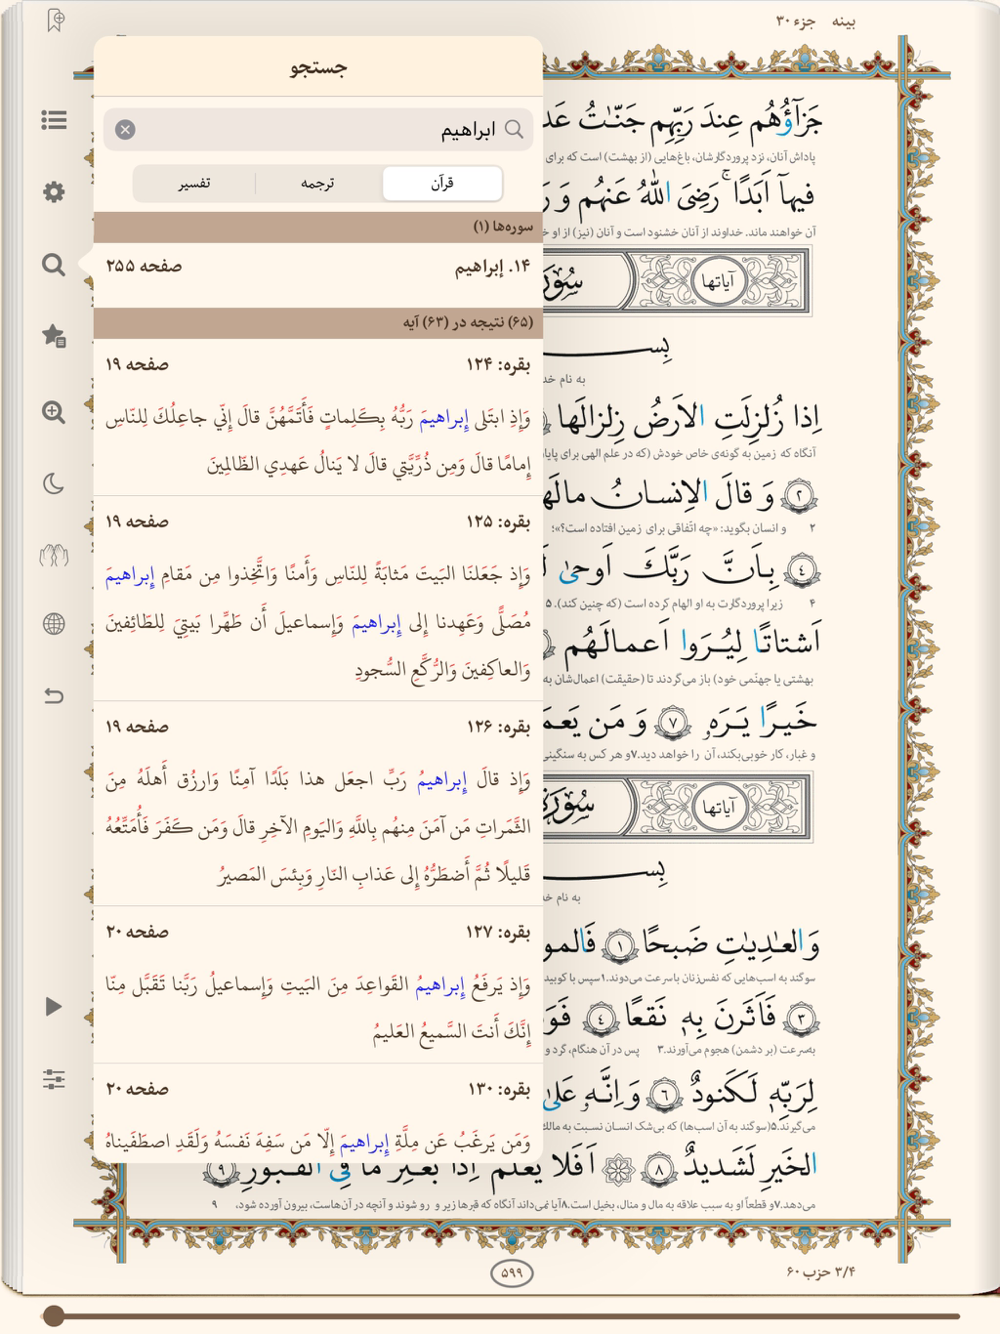 بینه جزء ۳۰
جستجو
ابراهیم
قرآن ترجمه تفسیر
سوره‌ها (۱)
۱۴. إبراهيم صفحه ۲۵۵
(۶۵) نتیجه در (۶۳) آیه
بقره: ۱۲۴ صفحه ۱۹
وَإِذِ ابتَلىٰ إِبراهيمَ رَبُّهُ بِكَلِماتٍ فَأَتَمَّهُنَّ قالَ إِنّي جاعِلُكَ لِلنّاسِ
إِمامًا قالَ وَمِن ذُرِّيَّتي قالَ لا يَنالُ عَهدِي الظّالِمينَ
بقره: ۱۲۵ صفحه ۱۹
وَإِذ جَعَلنَا البَيتَ مَثابَةً لِلنّاسِ وَأَمنًا وَاتَّخِذوا مِن مَقامِ إِبراهيمَ
مُصَلًّى وَعَهِدنا إِلى إِبراهيمَ وَإِسماعيلَ أَن طَهِّرا بَيتِيَ لِلطّائِفينَ
وَالعاكِفينَ وَالرُّكَّعِ السُّجودِ
بقره: ۱۲۶ صفحه ۱۹
وَإِذ قالَ إِبراهيمُ رَبِّ اجعَل هذا بَلَدًا آمِنًا وَارزُق أَهلَهُ مِنَ
الثَّمَراتِ مَن آمَنَ مِنهُم بِاللَّهِ وَاليَومِ الآخِرِ قالَ وَمَن كَفَرَ فَأُمَتِّعُهُ
قَليلًا ثُمَّ أَضطَرُّهُ إِلى عَذابِ النّارِ وَبِئسَ المَصيرُ
بقره: ۱۲۷ صفحه ۲۰
وَإِذ يَرفَعُ إِبراهيمُ القَواعِدَ مِنَ البَيتِ وَإِسماعيلُ رَبَّنا تَقَبَّل مِنّا
إِنَّكَ أَنتَ السَّميعُ العَليمُ
بقره: ۱۳۰ صفحه ۲۰
وَمَن يَرغَبُ عَن مِلَّةِ إِبراهيمَ إِلّا مَن سَفِهَ نَفسَهُ وَلَقَدِ اصطَفَيناهُ
جَزاؤُهُم عِندَ رَبِّهِم جَنّٰتُ
پاداش آنان، نزد پروردگارشان، باغ‌هایی (از بهشت) است که برای
فيها اَبَدًا رَضِىَ اللّٰهُ عَنهُم وَ
آن خواهند ماند. خداوند از آنان خشنود است و آنان (نیز) از او
آیاتها
بِسـ
به نام
اِذا زُلزِلَتِ الاَرضُ زِلزالَها
آنگاه که زمین به گونه‌ی خاص خودش (که در علم الهی برای
۲ وَ قالَ الاِنسانُ مالَها
۲ و انسان بگوید: «چه اتّفاقی برای زمین افتاده است؟»؛
۴ بِاَنَّ رَبَّكَ اَوحىٰ
۴ زیرا پروردگارت به او الهام کرده است (که چنین کند). ۵
اَشتاتًا لِيُرَوا اَعمالَهُم
بهشتی یا جهنّمی خود) باز می‌گردند تا (حقیقت) اعمال‌شان به
خَيرًا يَرَهٗ ۷ وَ مَن يَعمَـ
و غبار، کار خوبی بکند، آن را خواهد دید.۷و هر کس به سنگینی
آیاتها
بِسـ
به نام خد
وَالعٰدِيٰتِ ضَبحًا ۱ فَالمو
سوگند به اسب‌هایی که نفس‌زنان با سرعت می‌دوند.۱سپس با کوبیدن
۳ فَاَثَرنَ بِهٖ نَقعًا ۴ فَوَ
به‌سرعت (بر دشمن) هجوم می‌آورند.۳ پس در آن هنگام، گرد و
لِرَبِّهٖ لَكَنودٌ ۶ وَ اِنَّهٗ عَلىٰ
می‌گیرند.۵(سوگند به آن اسب‌ها) که بی‌شک انسان نسبت به مالک
الخَيرِ لَشَديدٌ ۸ اَفَلا يَعلَمُ اِذا بُعثِرَ ما فِى القُبورِ ۹
می‌دهد.۷و قطعاً او به سبب علاقه به مال و منال، بخیل است.۸آیا نمی‌داند آنگاه که قبرها زیر و رو شوند و آنچه در آن‌هاست، بیرون آورده شود، ۹
۳/۴ حزب ۶۰
۵۹۹